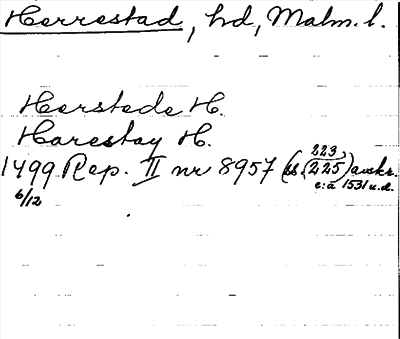 Herrestad, hd, Malm. l.
Herstede H.
Harestay H.
1499 Rep. II nr 8957 (s. 223, 225) avskr.
6/12 c:a 1531 u.d.